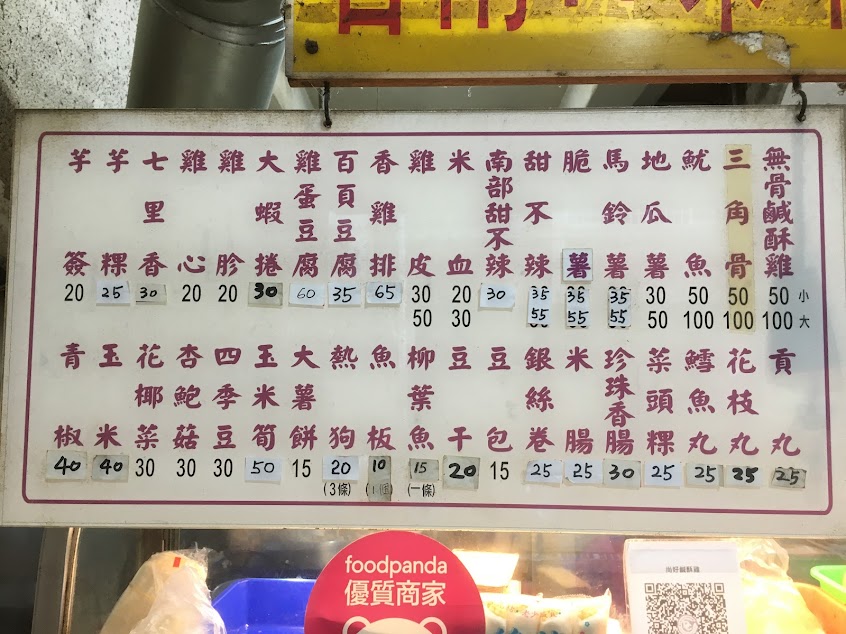 無骨鹹酥雞 50 小 100 大
三角骨 50 100
魷魚 50 100
地瓜薯 30 50
馬鈴薯 35 55
脆薯 35 55
甜不辣 35 55
南部甜不辣 30
米血 20 30
雞皮 30 50
香雞排 65
百頁豆腐 35
雞蛋豆腐 60
大蝦捲 30
雞胗 20
雞心 20
七里香 30
芋粿 25
芋簽 20
貢丸 25
花枝丸 25
鱈魚丸 25
菜頭粿 25
珍珠香腸 30
米腸 25
銀絲卷 25
豆包 15
豆干 20
柳葉魚 15 (一條)
魚板 10
熱狗 20 (3條)
大薯餅 15
玉米筍 50
四季豆 30
杏鮑菇 30
花椰菜 30
玉米 40
青椒 40
foodpanda
優質商家
尚好鹹酥雞